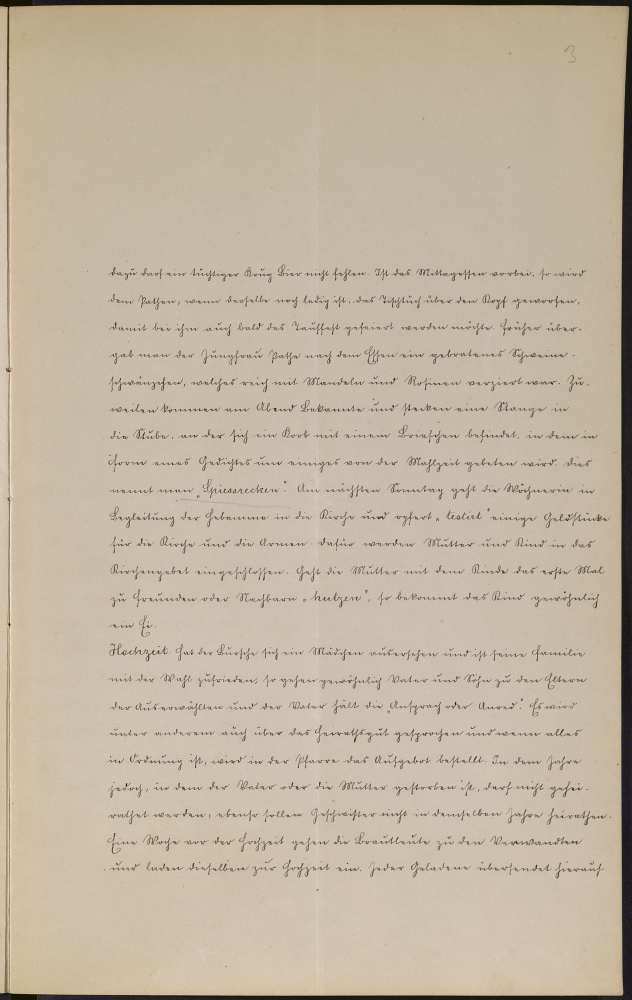 3
dazu darf ein tüchtiger Krug Bier nicht fehlen. Ist das Mittagessen vorbei, so wird
dem Pathen, wenn derselbe noch ledig ist, das Tischtuch über den Kopf geworfen,
damit bei ihm auch bald das Tauffest gefeiert werden möchte. Früher über-
gab man der Jungfrau Pathe nach dem Essen ein gebratenes Schweine-
schwänzchen, welches reich mit Mandeln und Rosinen verziert war. Zu-
weilen kommen am Abend Bekannte und stecken eine Stange in
die Stube, an der sich ein Korb mit einem Briefchen befindet, in dem in
Form eines Gedichtes um einiges von der Mahlzeit gebeten wird. Dies
nennt man „Spiessrecken“. Am nächsten Sonntag geht die Wöchnerin in
Begleitung der Hebamme in die Kirche und opfert einige Geldstücke
für die Kirche und die Armen. Dafür werden Mutter und Kind in das
Kirchengebet eingeschlossen. Geht die Mutter mit dem Kinde das erste Mal
zu Freunden oder Nachbarn „hutzen“, so bekommt das Kind gewöhnlich
ein Ei.
Hochzeit. Hat der Bursche sich ein Mädchen auserschen und ist seine Familie
mit der Wahl zufrieden, so gehen gewöhnlich Vater und Sohn zu den Eltern
der Auserwählten und der Vater hält die „Ansprach oder Anred“. Es wird
unter anderem auch über das Heirathsgut gesprochen und wenn alles
in Ordnung ist, wird in der Pfarre das Aufgebot bestellt. In dem Jahre
jedoch, in dem der Vater oder die Mutter gestorben ist, darf nicht gehei-
rathet werden; ebenso sollen Geschwister nicht in demselben Jahre heirathen.
Eine Woche vor der Hochzeit gehen die Brautleute zu den Verwandten
und laden dieselben zur Hochzeit ein. Jeder Geladene übersendet hierauf